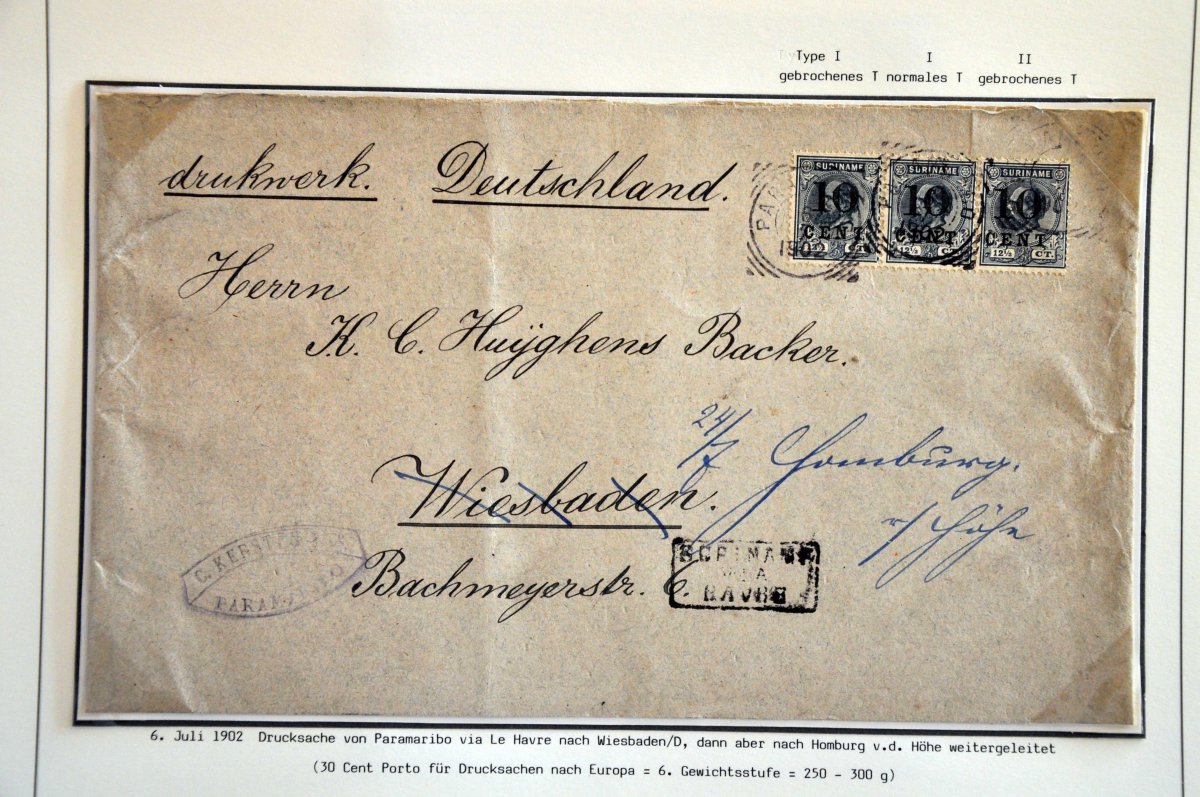 Type I I II
gebrochenes T normales T gebrochenes T
drukwerk. Deutschland.
SURINAME SURINAME SURINAME
10 10 10
CENT CENT CENT
12½ CT. 12½ CT. 12½ CT.
1902
Herrn
K. C. Huÿghens Backer.
24/7 Homburg.
v/ Höhe
Wiesbaden.
Bachmeyerstr. 6.
C. KERSTEN
PARAMARIBO
SURINAME
VIA
HAVRE
6. Juli 1902 Drucksache von Paramaribo via Le Havre nach Wiesbaden/D, dann aber nach Homburg v.d. Höhe weitergeleitet
(30 Cent Porto für Drucksachen nach Europa = 6. Gewichtsstufe = 250 - 300 g)